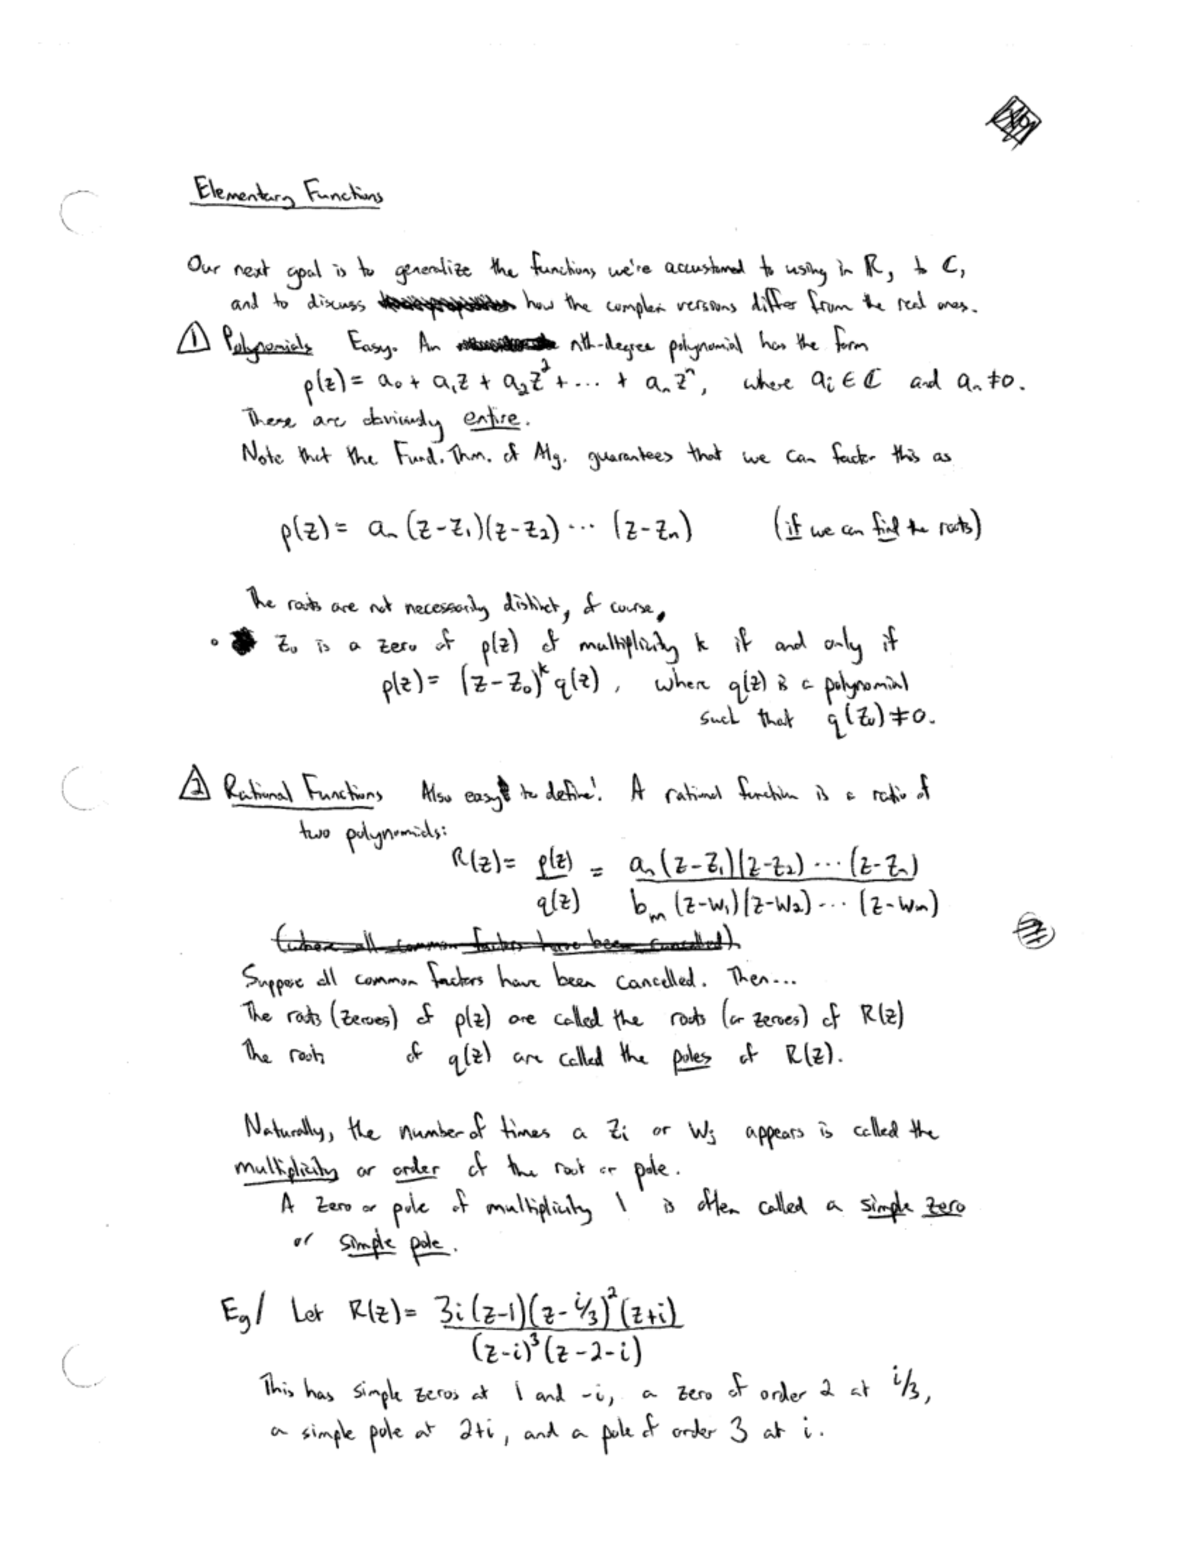 Elementary Functions
Our next goal is to generalize the functions we're accustomed to using in ℝ, to ℂ,
and to discuss how the complex versions differ from the real ones.
1 Polynomials Easy. An nth-degree polynomial has the form
p(z) = a₀ + a₁z + a₂z² + ... + aₙzⁿ, where aᵢ ∈ ℂ and aₙ ≠ 0.
These are obviously entire.
Note that the Fund. Thm. of Alg. guarantees that we can factor this as
p(z) = aₙ (z-z₁)(z-z₂) ... (z-zₙ) (if we can find the roots)
The roots are not necessarily distinct, of course.
• z₀ is a zero of p(z) of multiplicity k if and only if
p(z) = (z-z₀)ᵏ q(z), where q(z) is a polynomial
such that q(z₀) ≠ 0.
2 Rational Functions Also easy to define! A rational function is a ratio of
two polynomials:
R(z) = p(z)/q(z) = aₙ(z-z₁)(z-z₂) ... (z-zₙ) / bₘ(z-w₁)(z-w₂) ... (z-wₘ)
(where all common factors have been cancelled).
Suppose all common factors have been cancelled. Then...
The roots (zeroes) of p(z) are called the roots (or zeroes) of R(z)
The roots of q(z) are called the poles of R(z).
Naturally, the number of times a zᵢ or wⱼ appears is called the
multiplicity or order of the root or pole.
A zero or pole of multiplicity 1 is often called a simple zero
or simple pole.
Eg/ Let R(z) = 3i(z-1)(z-i/3)²(z+i) / (z-i)³(z-2-i)
This has simple zeros at 1 and -i, a zero of order 2 at i/3,
a simple pole at 2+i, and a pole of order 3 at i.